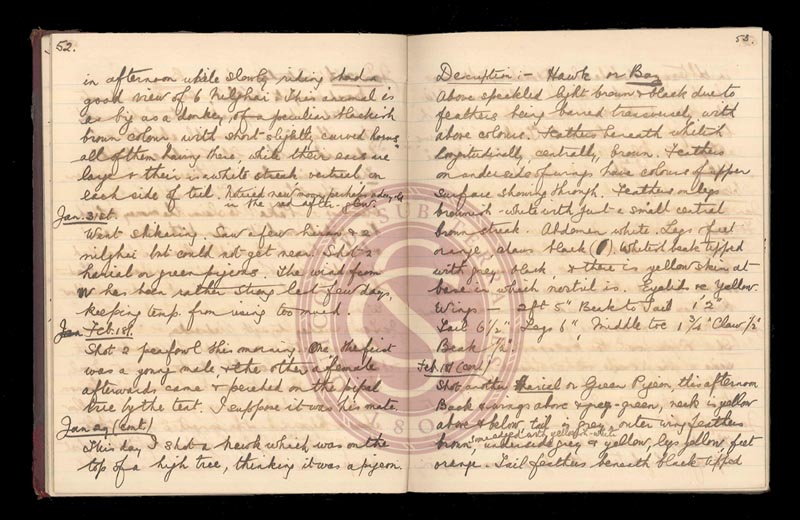 52.
in afternoon while slowly riding had a
good view of 6 Nilghai. This animal is
as big as a donkey, of a peculiar blackish
brown colour with short slightly curved horns,
all of them having there, while their ears are
large & there is a white streak vertical on
each side of tail. Noticed new moon, perhaps a day old
in the red after-glow.
Jan. 31st.
Went shikering. Saw a few & 2
nilghai but could not get near. Shot 2
harial or green pigeons. The wind from
W has been rather strong last few days,
keeping temp. from rising too much.
Jan Feb. 1st.
Shot 2 peafowl this morning. One, the first
was a young male & the other a female
afterwards came & perched on the pipal
tree by the tent. I suppose it was his mate.
Jan 29 (cont)
This day I shot a hawk which was on the
top of a high tree, thinking it was a pigeon.
53.
Description :- Hawk or Baz
Above speckled light brown & black due to
feathers being barred transversely with
above colours. Feathers beneath whitish
longitudinally, centrally, brown. Feathers
on underside of wings have colours of upper
surface showing through. Feathers on legs
brownish-white with just a small central
brown streak. Abdomen white. Legs & feet
orange, claws black. Whitish beak tipped
with grey black, & there is yellow skin at
base in which nostril is. Eyelids yellow.
Wings - 2ft 5" Beak to Tail 1' 2"
Tail 6 1/2" Legs 6", Middle toe 1 3/4" Claw 1/2"
Beak 1/2".
Feb. 1st (cont)
Shot another Harial or Green Pigeon, this afternoon
Back & wings above grey-green, neck is yellow
above & below, tail is grey & outer wing feathers
brown, edged with yellowish-white, underside grey & yellow, legs yellow, feet
orange. Tail feathers beneath black tipped